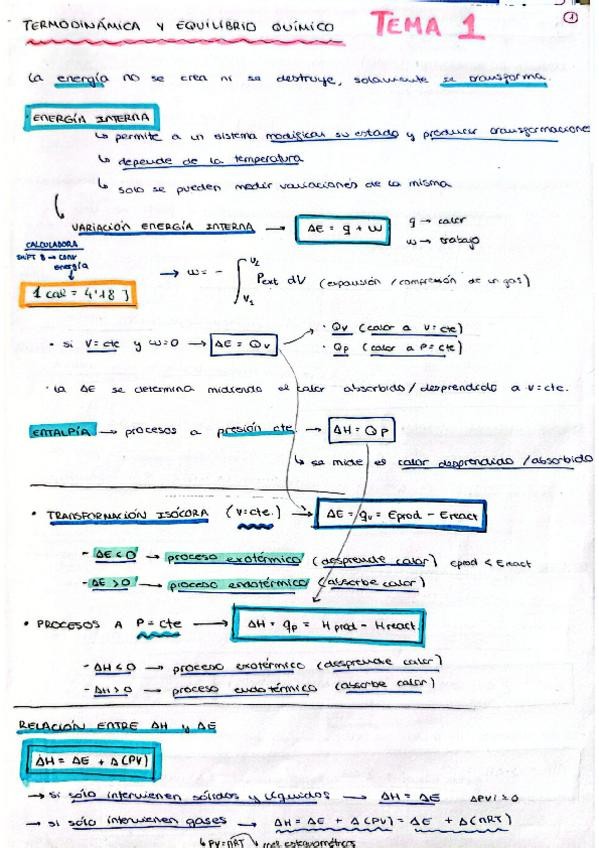 TERMODINÁMICA Y EQUILIBRIO QUÍMICO TEMA 1
1
La energía no se crea ni se destruye, solamente se transforma.
ENERGÍA INTERNA
↳ permite a un sistema modificar su estado y producir transformaciones
↳ depende de la temperatura
↳ solo se pueden medir variaciones de la misma
VARIACIÓN ENERGÍA INTERNA → ΔE = q + w
q → calor
w → trabajo
CALCULADORA
SHIFT 8 → conv
energía
1 cal = 4'18 J
→ w = - ∫ V2 V1 Pext dV (expansión / compresión de un gas)
• si V = cte y w = 0 → ΔE = Qv
• Qv (calor a V = cte)
• Qp (calor a P = cte)
• La ΔE se determina midiendo el calor absorbido / desprendido a V = cte.
ENTALPÍA → procesos a presión cte. → ΔH = Qp
↳ se mide el calor desprendido / absorbido
• TRANSFORMACIÓN ISÓCORA (V = cte.) → ΔE = qv = Eprod - Ereact
- ΔE < 0 → proceso exotérmico (desprende calor) Eprod < Ereact
- ΔE > 0 → proceso endotérmico (absorbe calor)
• PROCESOS A P = cte → ΔH = qp = Hprod - Hreact.
- ΔH < 0 → proceso exotérmico (desprende calor)
- ΔH > 0 → proceso endotérmico (absorbe calor)
RELACIÓN ENTRE ΔH y ΔE
ΔH = ΔE + Δ(PV)
→ si sólo intervienen sólidos y líquidos → ΔH = ΔE
→ si sólo intervienen gases → ΔH = ΔE + Δ(PV) = ΔE + Δ(nRT)
↳ PV = nRT ↘ mol. estequiométricos